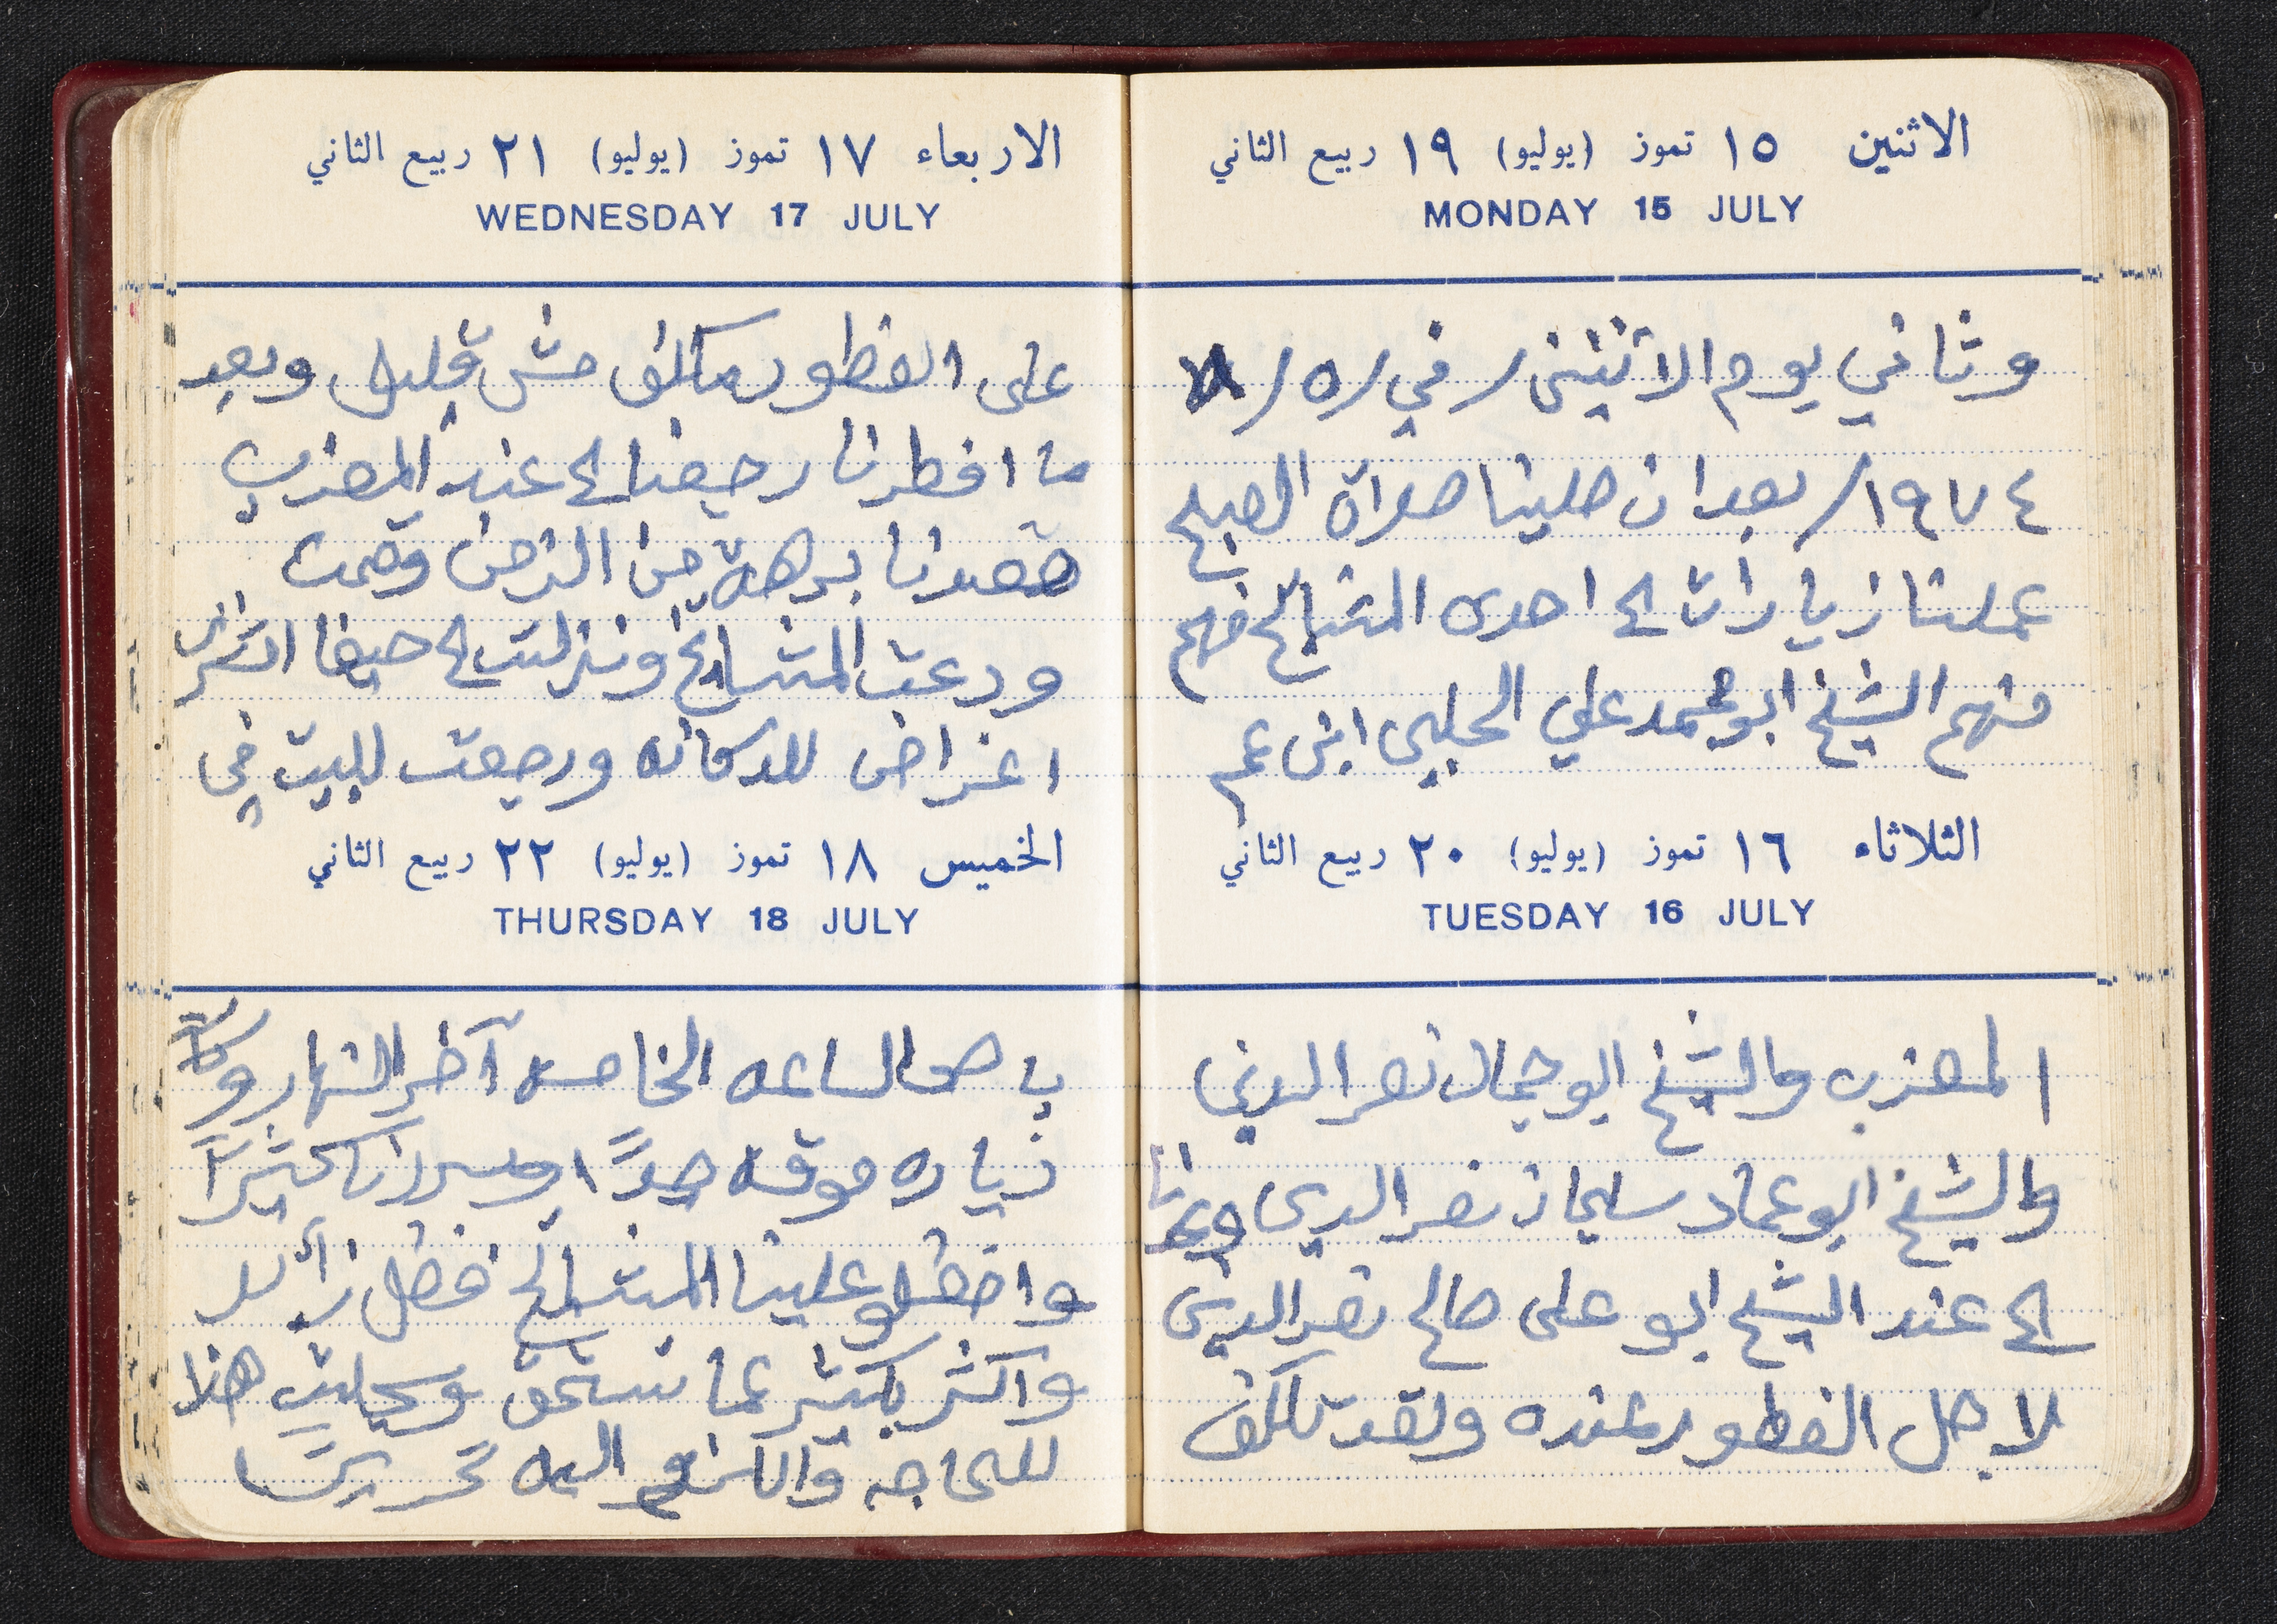 الاثنين ١٥ تموز (يوليو) ١٩ ربيع الثاني
MONDAY 15 JULY
وثاني يوم الاثنين / في / ٥ / ٨
١٩٧٤ / بعد ان صلينا صلاة الصبح
عملنا زيارات الى احدى المشايخ فهم
منهم الشيخ ابو محمد علي الحلبي ابن عم
الثلاثاء ١٦ تموز (يوليو) ٢٠ ربيع الثاني
TUESDAY 16 JULY
المغرب والشيخ ابو جمال نصر الدين
والشيخ ابو عماد سليمان نصر الدين
الى عند الشيخ ابو علي صالح نصر الدين
لاجل الفطور عنده ولقد تكلف
الاربعاء ١٧ تموز (يوليو) ٢١ ربيع الثاني
WEDNESDAY 17 JULY
على الفطور مكلف مش قليل وبعد
ما افطرنا رجعنا الى عند المغرب
فقعدنا برهة من الزمن وقمت
ودعت المشايخ ونزلت الى حيفا اشتري
اغراض للدكانه ورجعت للبيت في
الخميس ١٨ تموز (يوليو) ٢٢ ربيع الثاني
THURSDAY 18 JULY
باص الساعه الخامسه آخر النهار وكانت
زياره موفقه جداً وسررنا كثيراً
وافضلو علينا المشايخ فضل زائد
واكثر بكثير عما نستحق وسجلت هذا
للحاجه واللزوم اليه تحريرًا